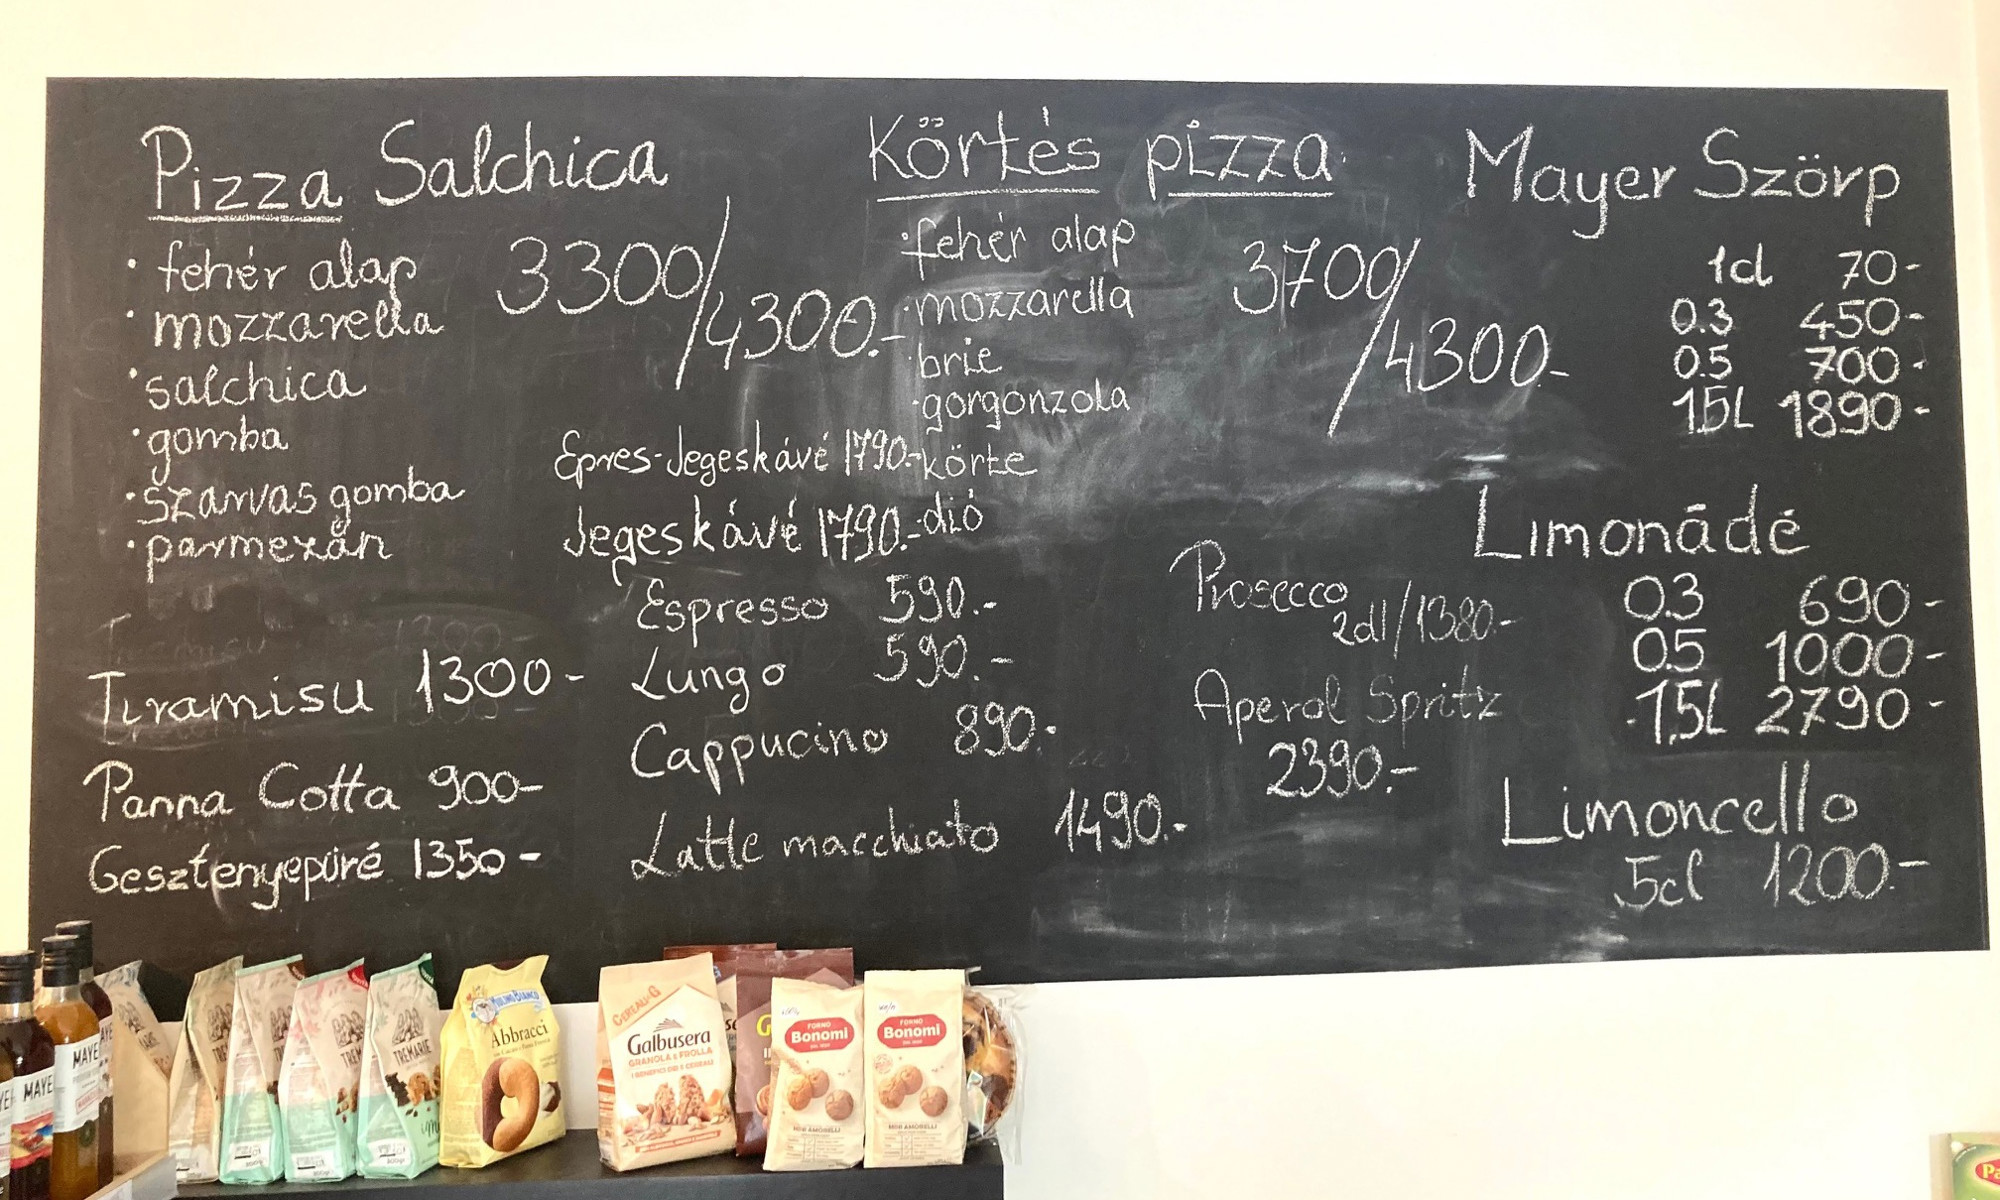 Pizza Salchica
• fehér alap
• mozzarella
• salchica
• gomba
• szarvas gomba
• parmezán
3300/4300.-
Körtés pizza
• fehér alap
• mozzarella
• brie
• gorgonzola
körte
• dió
3700/4300-
Mayer Szörp
1cl 70-
0.3 450-
0.5 700-
1.5L 1890-
Epres-Jegeskávé 1790.-
Jegeskávé 1790.-
Espresso 590.-
Lungo 590.-
Cappucino 890.-
Latte macchiato 1490.-
Tiramisu 1300-
Panna Cotta 900-
Gesztenyepüré 1350-
Prosecco
2dl/1380.-
Aperol Spritz
2390.-
Limonádé
0.3 690-
0.5 1000-
1.5L 2790-
Limoncello
5cl 1200.-
MAYE
MAYE
TREMARIE
Mulino Bianco
Abbracci
CEREALI-G
Galbusera
GRANOLA & FROLLA
I BENEFICI DEI 5 CEREALI
FORNO
Bonomi
MINI AMORELLI
FORNO
Bonomi
MINI AMORELLI